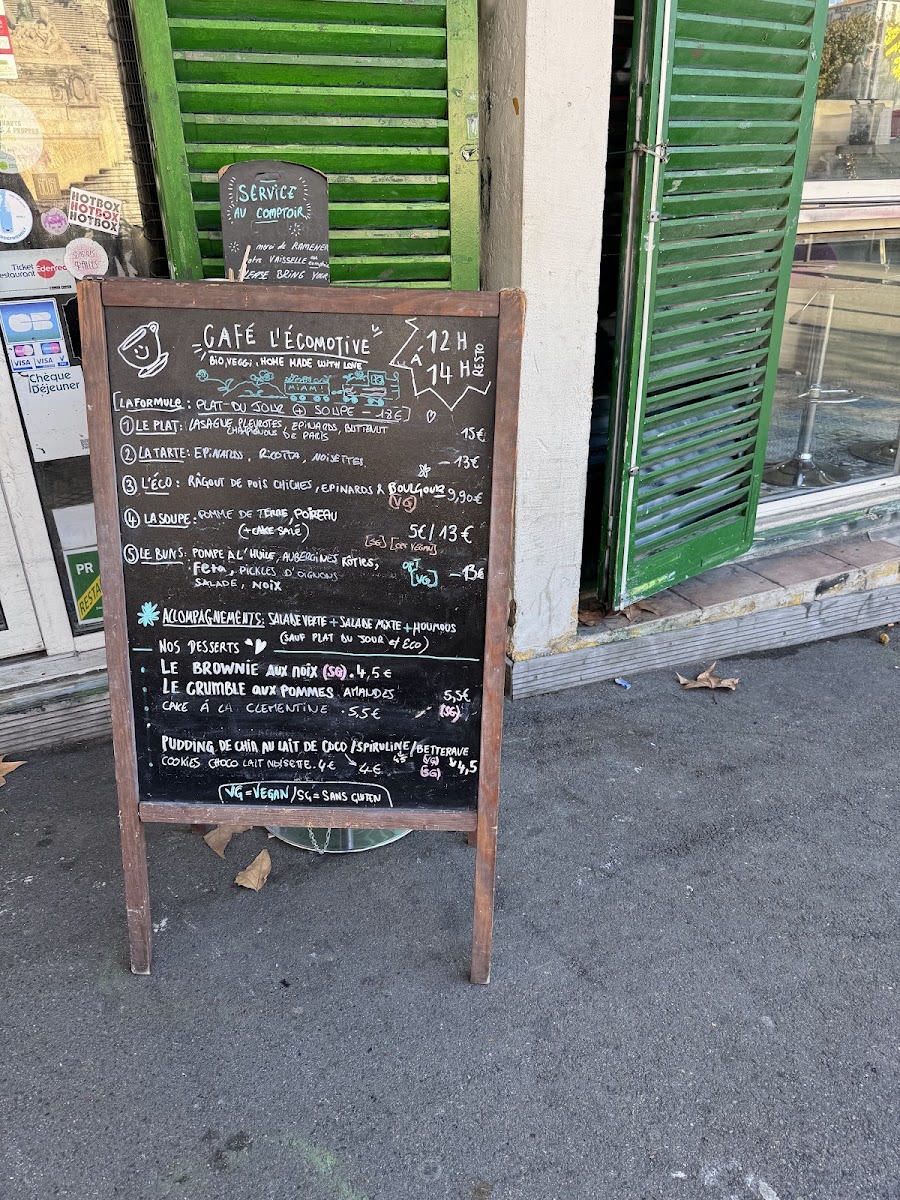 HOTBOX
HOTBOX
HOTBOX
Ticket
Restaurant Edenred
CB
VISA VISA
Chèque
Déjeuner
PR
SERVICE
AU COMPTOIR
merci de RAMENER
votre VAISSELLE au comptoir
PLEASE BRING YOUR
CAFÉ L'ÉCOMOTIVE
BIO, VEGGI, HOME MADE WITH LOVE
MIAMI
12H
À
14H RESTO
LA FORMULE: PLAT DU JOUR + SOUPE - 18€
① LE PLAT: LASAGNE PLEUROTES, EPINARDS, BUTTENUT
CHAMPIGNONS DE PARIS 15€
② LA TARTE: EPINARDS, RICOTTA, NOISETTES. - 13€
③ L'ÉCO: RÂGOUT DE POIS CHICHES, EPINARDS & BOULGOUR 9,90€
(VG)
④ LA SOUPE: POMME DE TERRE, POIREAU
(+ CAKE SALÉ) 5€/13€
[SG] [OPT VEGAN]
⑤ LE BUNS: POMPE A L'HUILE, AUBERGINES RÔTIES,
FETA, PICKLES D'OIGNONS OPT [VG] - 13€
SALADE, NOIX
ACCOMPAGNEMENTS: SALADE VERTE + SALADE MIXTE + HOUMOUS
(SAUF PLAT DU JOUR et ECO)
NOS DESSERTS
LE BROWNIE AUX NOIX (SG). 4,5€
LE CRUMBLE AUX POMMES AMANDES 5,5€
CAKE À LA CLEMENTINE . 5,5€ (SG)
PUDDING DE CHIA AU LAIT DE COCO / SPIRULINE / BETTERAVE
COOKIES CHOCO LAIT NOISETTE. 4€ 4€ 4,5 (VG) 4,5
(SG)
VG = VEGAN / SG = SANS GLUTEN